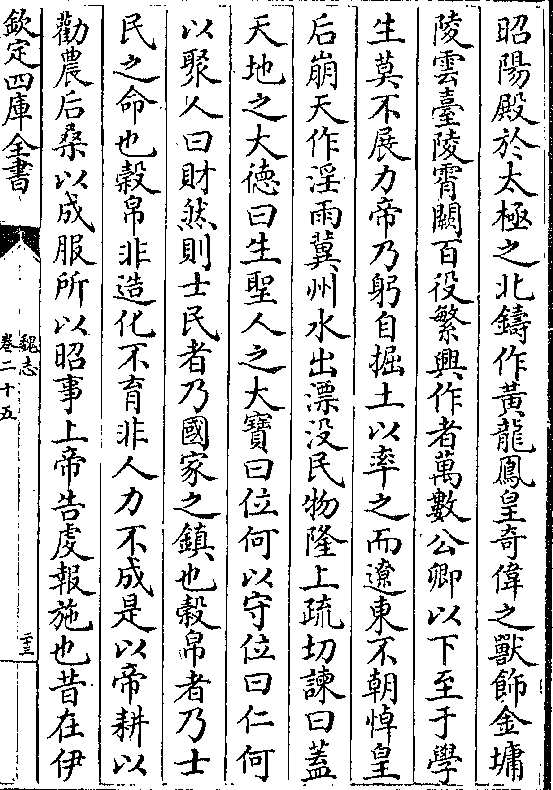 昭陽殿於太極之北鑄作黃龍鳳皇奇偉之獸飾金墉
陵雲臺陵霄闕百役繁興作者萬數公卿以下至于學
生莫不展力帝乃躬自掘土以率之而遼東不朝悼皇
后崩天作淫雨冀州水出漂没民物隆上疏切諫曰蓋
天地之大德曰生聖人之大寶曰位何以守位曰仁何
以聚人曰財然則士民者乃國家之鎮也穀帛者乃士
民之命也穀帛非造化不育非人力不成是以帝耕以
勸農后桑以成服所以昭事上帝告虔報施也昔在伊
欽定四庫全書
魏志
卷二十五
二十三